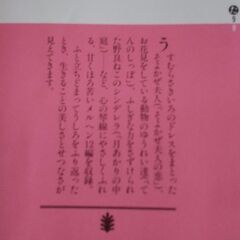 うすむらさきいろのドレスをまとった
そよかぜ夫人(「そよかぜ夫人の恋」)、
お花見をしている動物のゆうれい達(「て
んのしっぽ」)、ふしぎな力をさずけられ
た野良ねこのシンデレラ(「月あかりの中
庭」)――など、心の琴線にやさしくふれ
る、甘くほろ苦いメルヘン12編を収録。
ふと立ちどまってうしろをふり返った
とき、生きることの美しさとせつなさが
見えてきます。